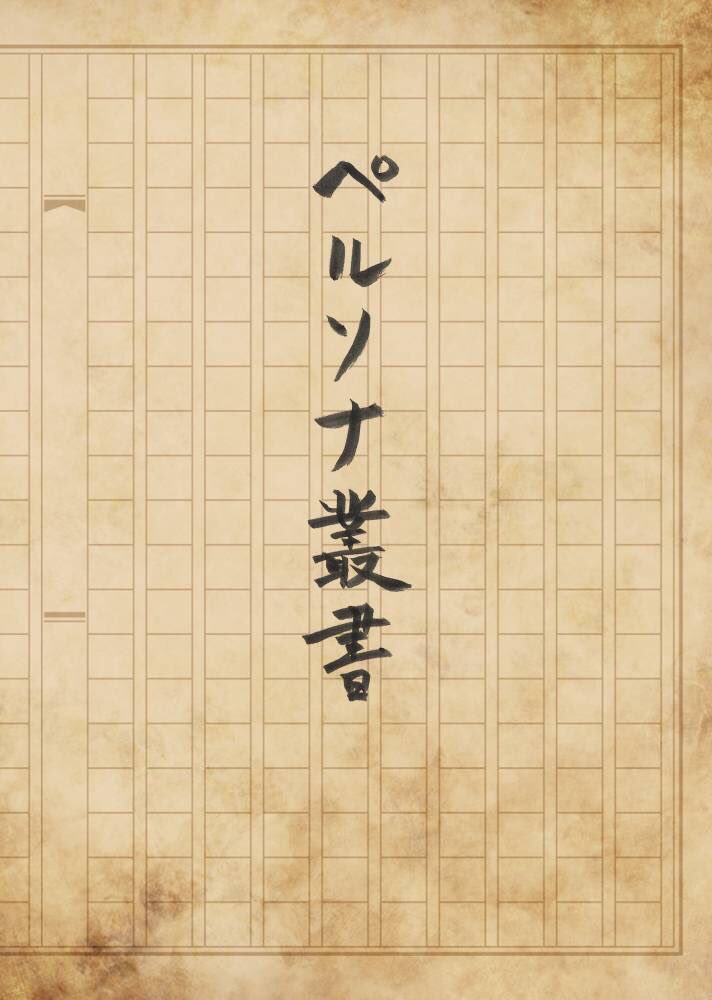 ペルソナ叢書